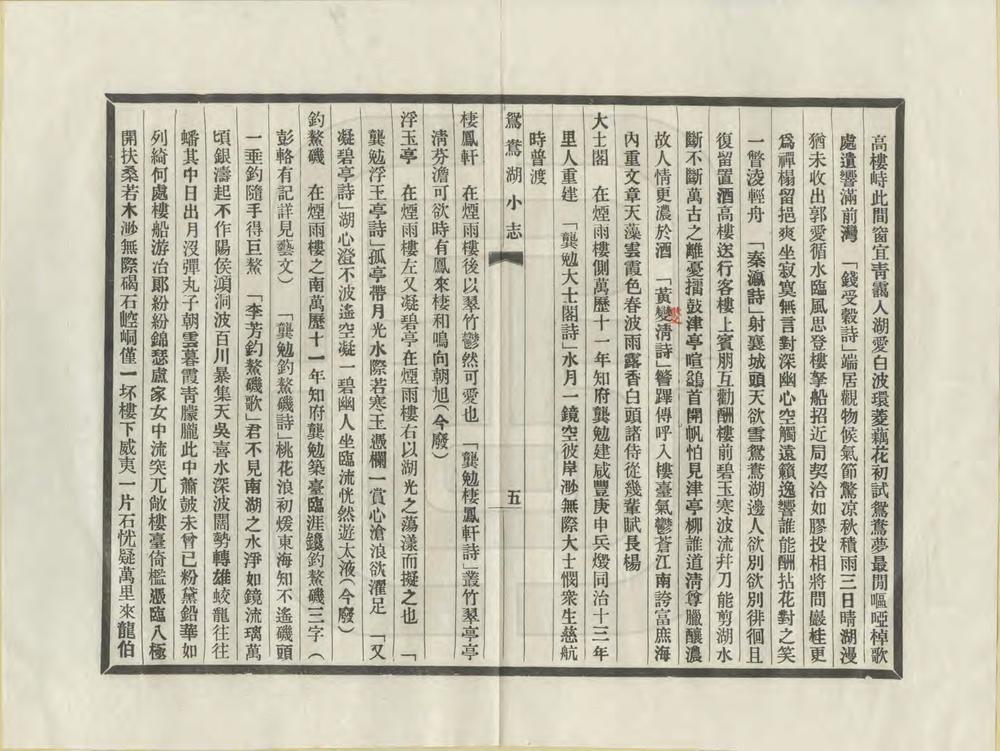 高樓峙此間窗宜靑靄人湖愛白波環菱藕花初試鴛鴦夢最閒嘔啞棹歌
處遺響滿前灣　「錢受穀詩」端居觀物候氣節驚凉秋積雨三日晴湖漫
猶未收出郭愛循水臨風思登樓拏船招近局契洽如膠投相將問巖桂更
爲禪榻留挹爽坐寂寞無言對深幽心空觸遠籟逸響誰能酬拈花對之笑
一瞥淩輕舟　「秦瀛詩」射襄城頭天欲雪鴛鴦湖邊人欲別欲別徘徊且
復留置酒高樓送行客樓上賓朋互勸酬樓前碧玉寒波流幷刀能剪湖水
斷不斷萬古之離憂擂鼓津亭喧鷁首開帆怕見津亭柳誰道清尊臘釀濃
故人情更濃於酒　「黃變清詩」警蹕傳呼入樓臺氣鬱蒼江南誇富庶海
內重文章天藻雲霞色春波雨露香白頭諸侍從幾輩賦長楊
大士閣　在煙雨樓側萬歷十一年知府龔勉建咸豐庚申兵燬同治十三年
里人重建　「龔勉大士閣詩」水月一鏡空彼岸渺無際大士憫衆生慈航
時普渡
鴛鴦湖小志
五
棲鳳軒　在煙雨樓後以翠竹鬱然可愛也　「龔勉棲鳳軒詩」叢竹翠亭亭
淸芬澹可欲時有鳳來棲和鳴向朝旭(今廢)
浮玉亭　在煙雨樓左又凝碧亭在煙雨樓右以湖光之蕩漾而擬之也　「
龔勉浮玉亭詩」孤亭帶月光水際若寒玉憑欄一賞心滄浪欲濯足　「又
凝碧亭詩」湖心澄不波遙空凝一碧幽人坐臨流恍然遊太液(今廢)
釣鰲磯　在煙雨樓之南萬歷十一年知府龔勉築臺臨涯鐫釣鰲磯三字(
彭輅有記詳見藝文)　「龔勉釣鰲磯詩」桃花浪初煖東海知不遙磯頭
一垂釣隨手得巨鰲　「李芳釣鰲磯歌」君不見南湖之水淨如鏡流璃萬
頃銀濤起不作陽侯澒洞波百川暴集天吳喜水深波闊勢轉雄蛟龍往往
蟠其中日出月沒彈丸子朝雲暮霞靑朦朧此中簫鼓未曾已粉黛鉛華如
列綺何處樓船游冶郞紛紛錦瑟盧家女中流突兀敞樓臺倚檻憑臨八極
開扶桑若木渺無際碣石崆峒僅一坏樓下威夷一片石恍疑萬里來龍伯